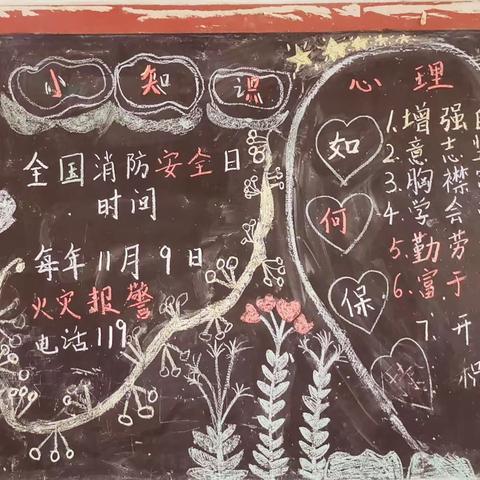 小知识
全国消防安全日
时间
每年11月9日
火灾报警
电话119
心理
如何保
1.增强
2.意志
3.胸襟
4.学会
5.勤劳
6.富于
7.开